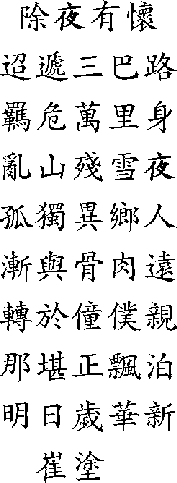 除夜有懷
迢遞三巴路
羈危萬里身
亂山殘雪夜
孤獨異鄉人
漸與骨肉遠
轉於僮僕親
那堪正飄泊
明日歲華新
崔塗